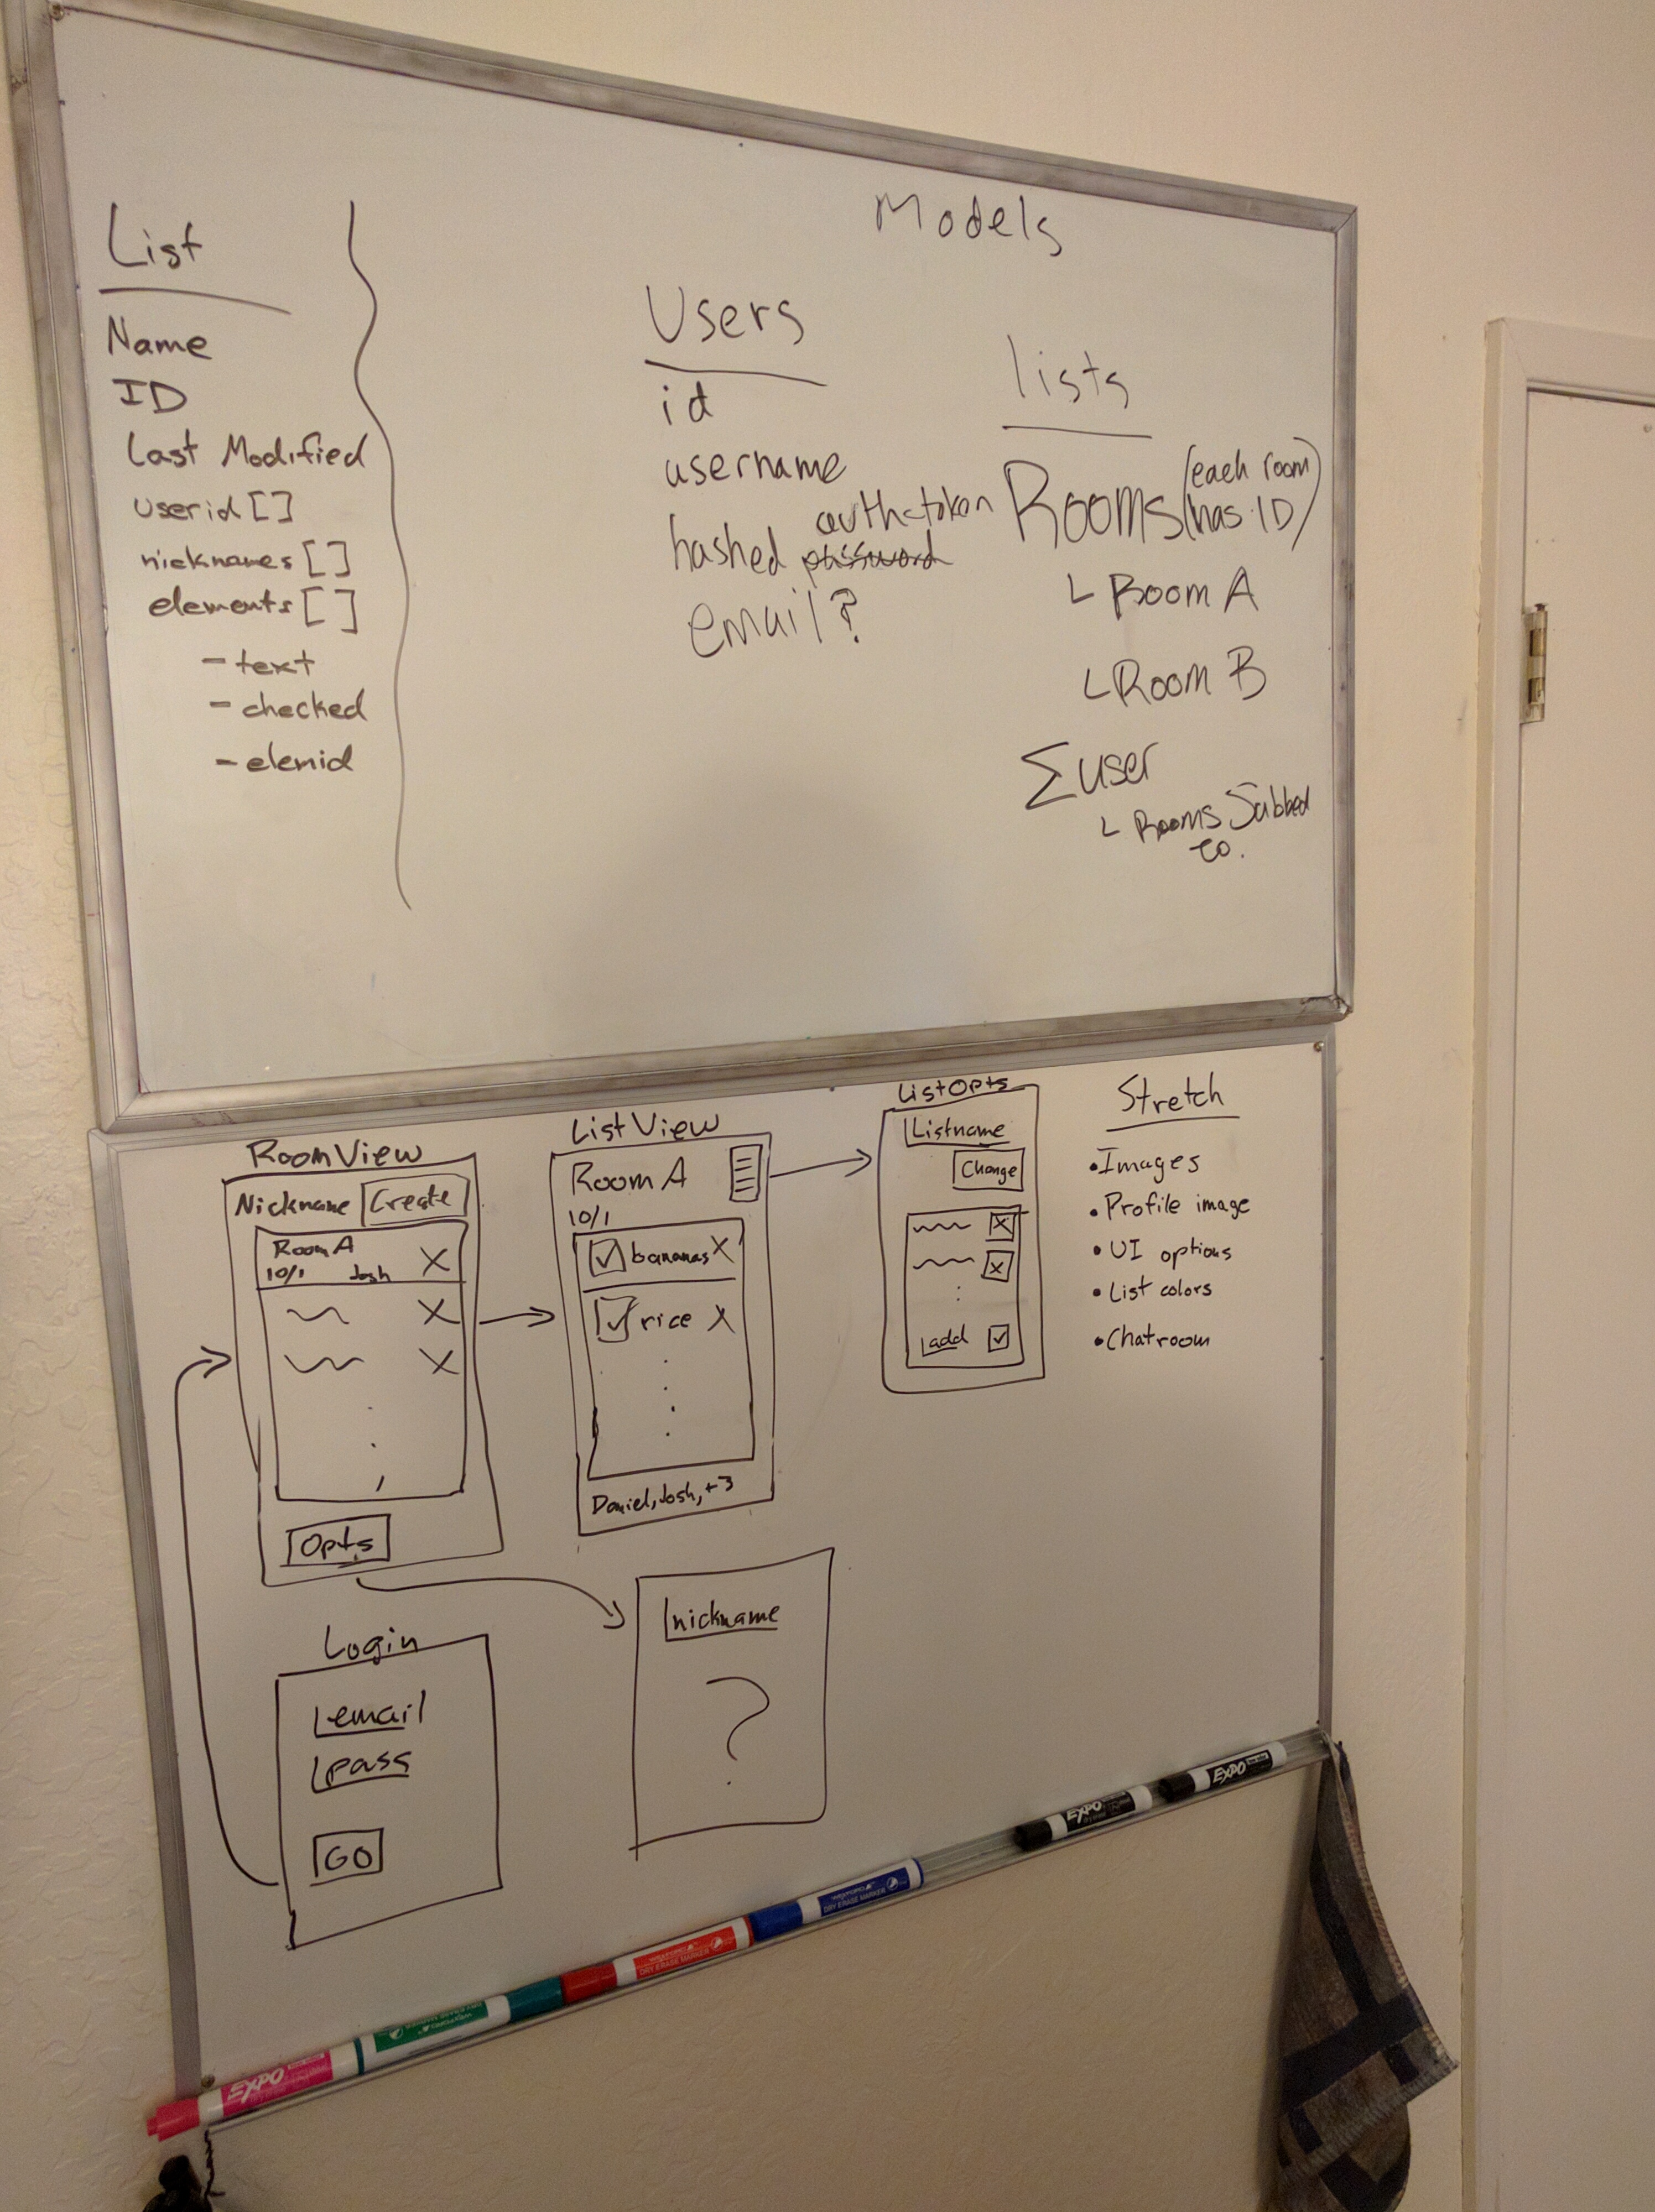 Models
List
Name
ID
Last Modified
userid []
nicknames []
elements []
- text
- checked
- elemid
Users
id
username
hashed password auth-token
email?
lists
Rooms (each room has ID)
Room A
Room B
Σ user
Rooms Subbed
to.
RoomView
Nickname Create
Room A
10/1 Josh X
X
X
Opts
ListView
Room A
10/1
bananas X
rice X
Daniel, Josh, +3
ListOpts
Listname
Change
X
X
add
Stretch
• Images
• Profile image
• UI options
• List colors
• Chatroom
Login
email
pass
GO
nickname
?
EXPO
EXPO
DRY ERASE MARKER
DRY ERASE MARKER
EXPO